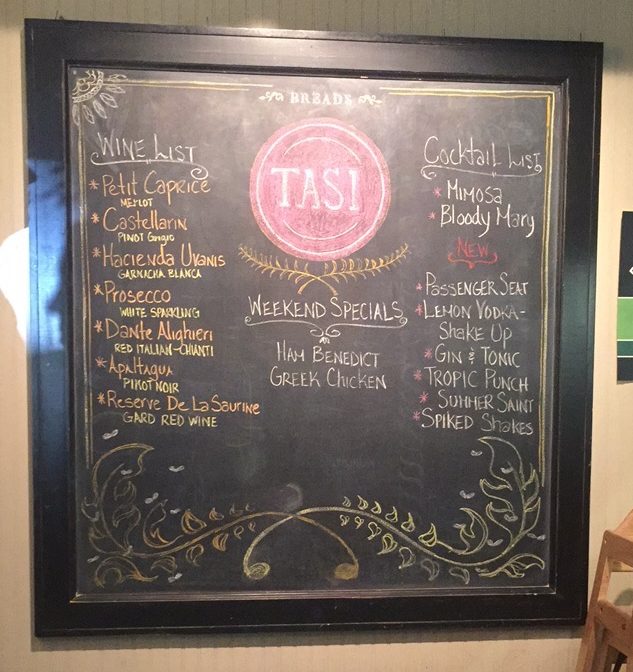 BREADS
TASI
WINE LIST
*Petit Caprice
MERLOT
*Castellarin
PINOT Grigio
*Hacienda Uvanis
GARNACHA BLANCA
*Prosecco
WHITE SPARKLING
*Dante Alighieri
RED ITALIAN-CHIANTI
*Apaltagua
PINOT NOIR
*Reserve De La Saurine
GARD RED WINE
WEEKEND SPECIALS
HAM BENEDICT
GREEK CHICKEN
Cocktail LIST
*Mimosa
*Bloody Mary
NEW
*PASSENGER SEAT
*LEMON VODKA-
SHAKE UP
*GIN & TONIC
*TROPIC PUNCH
*SUMMER SAINT
*SPIKED SHAKES